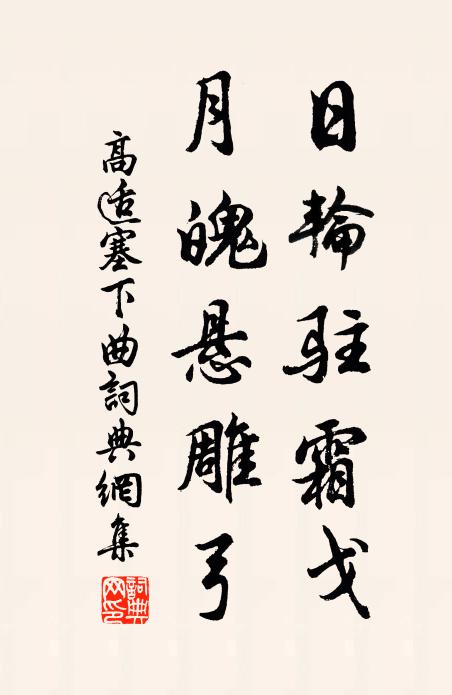 日輪駐霜戈
月魄悬雕弓
高适塞下曲詞典網集
詞典網印